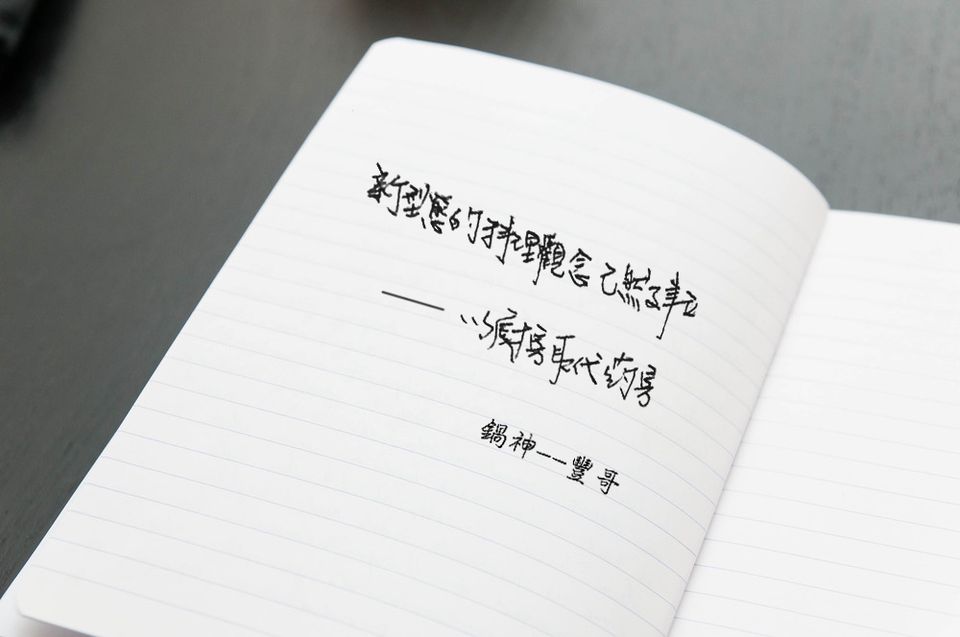 新型態的料理觀念已然建立
——以廚房取代药房
鍋神——豐哥